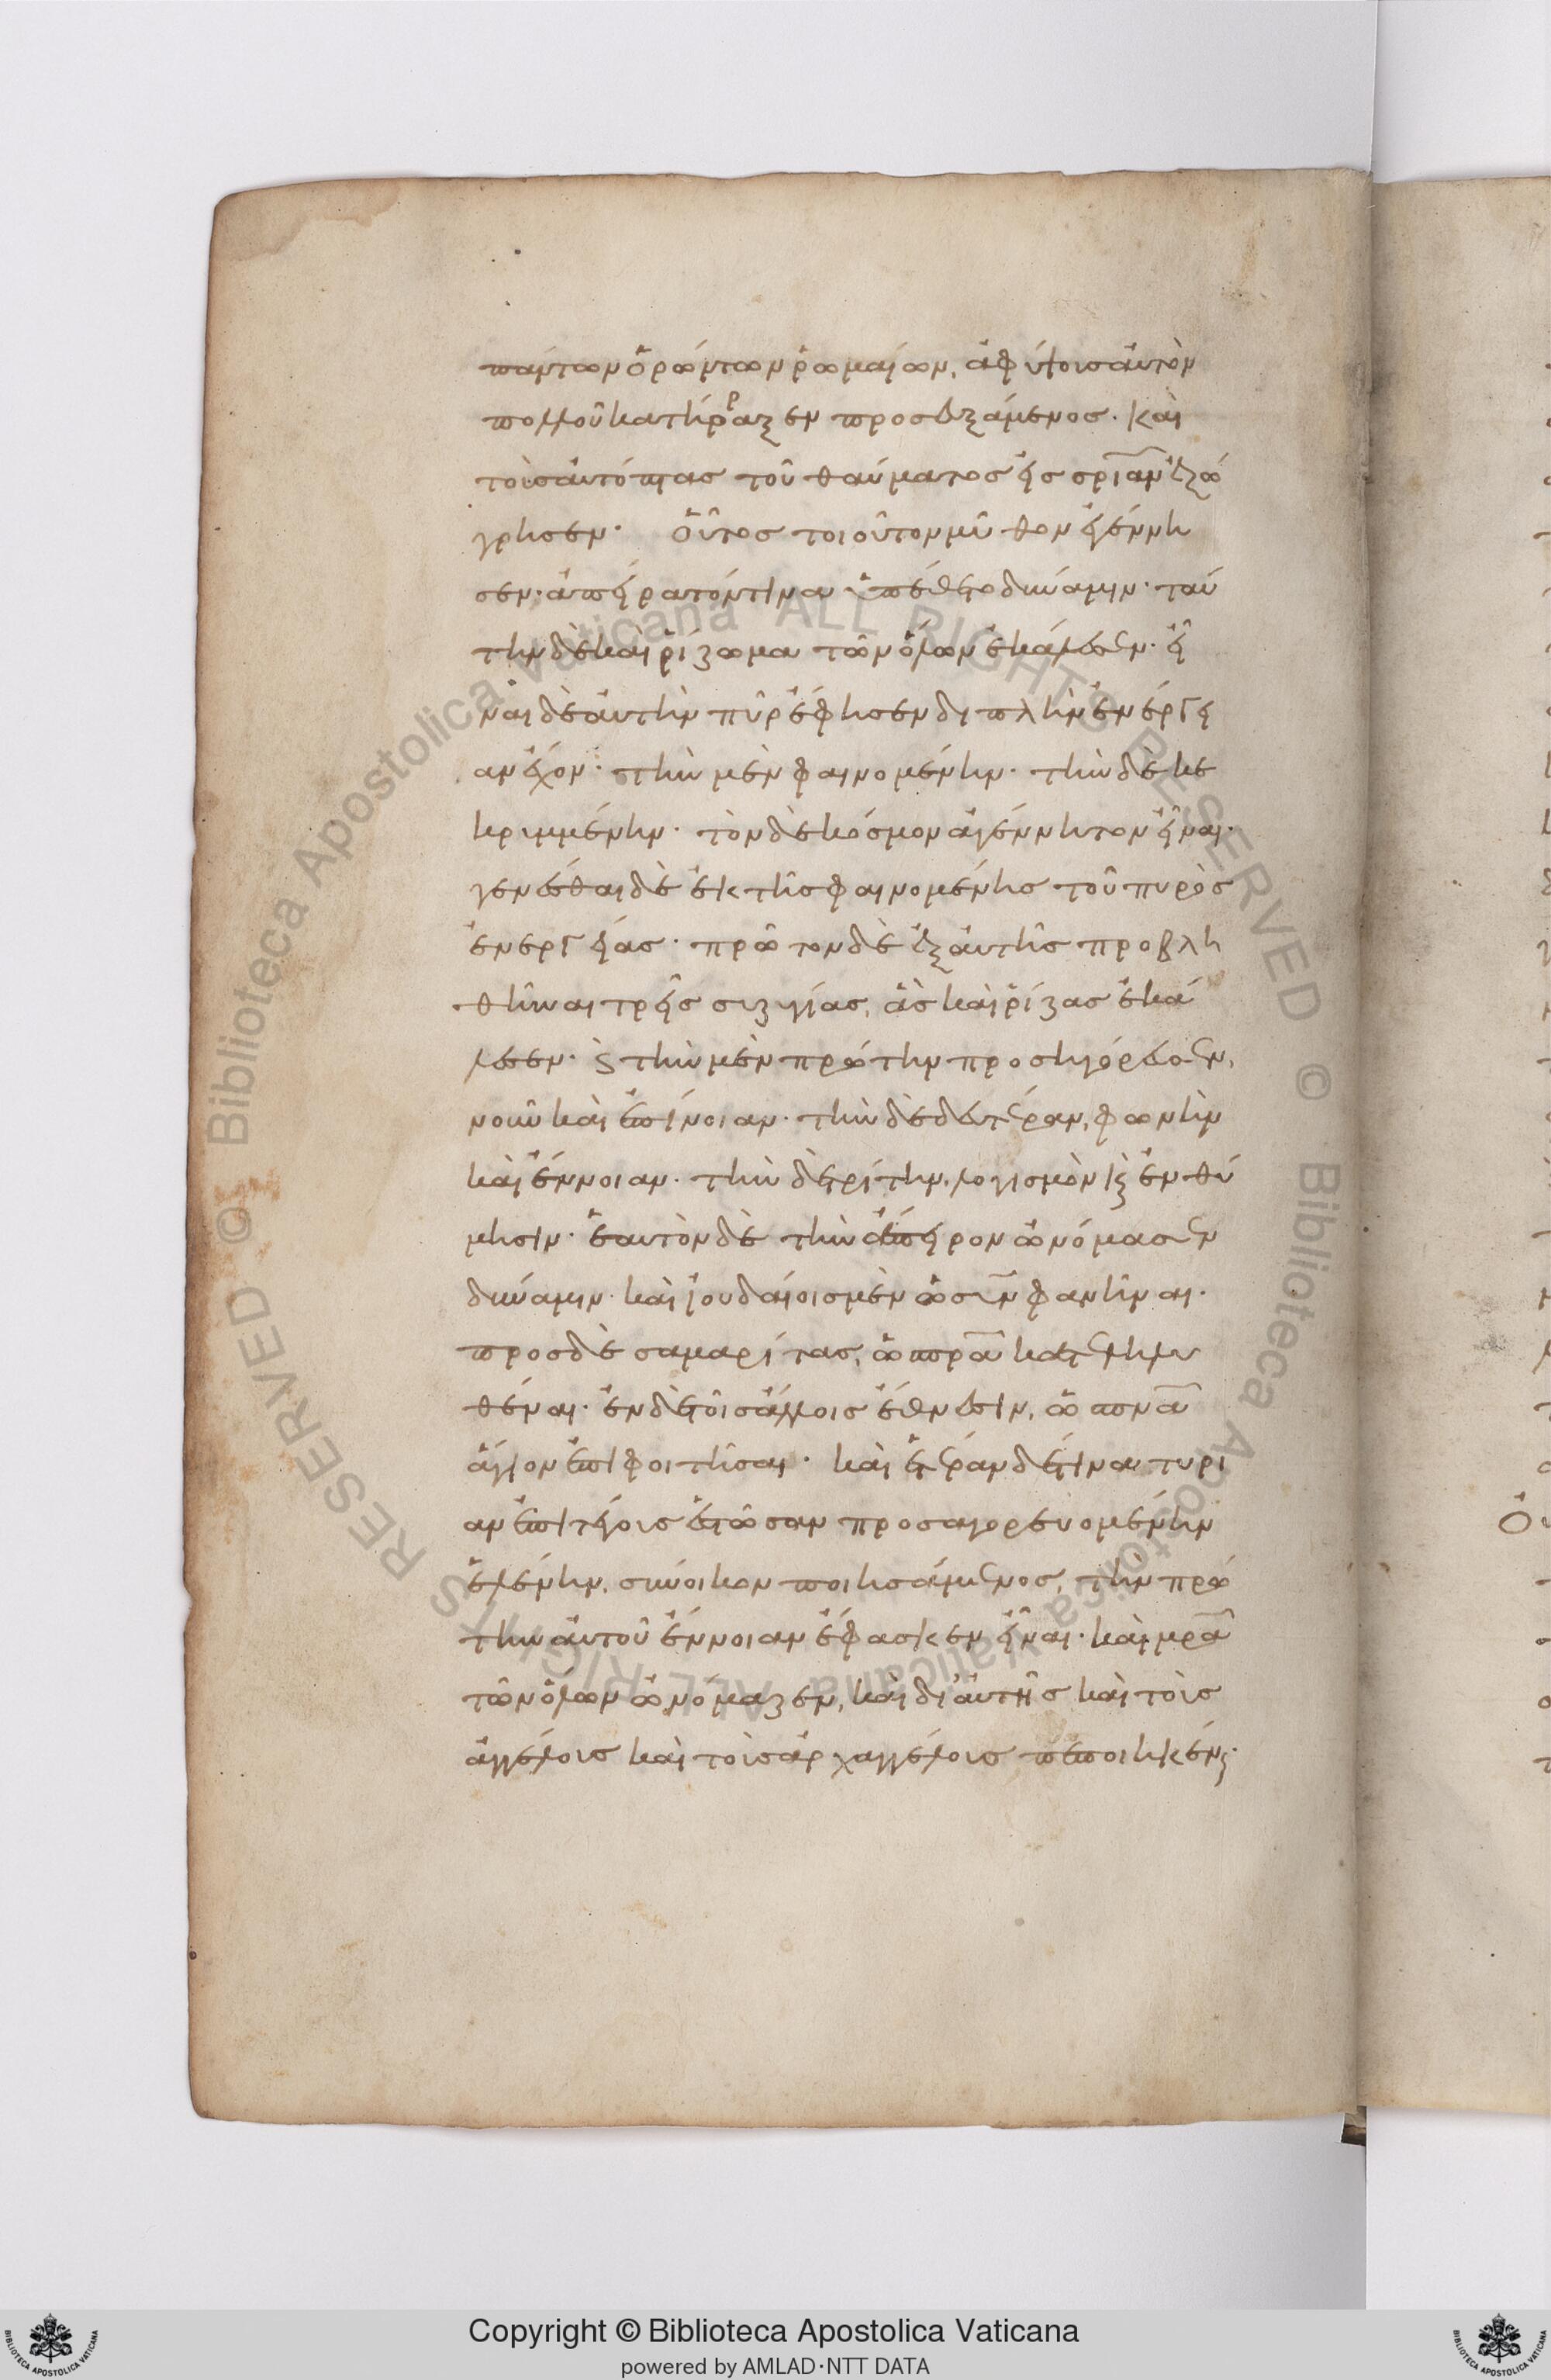 πάντων ὁρώντων ῥωμαίων, ἀφ ὕψους ἀυτὸν
πολλοῦ κατήρραξεν προσευξάμενος. καὶ
τοὺς ἀυτόπτας τοῦ θαύματος ἐις σρίαν ἐζώ
γρησεν. Οὗτος τοιοῦτον μῦθον ἐγέννη
σεν. ἀπείρατόν τινα ὑπέθετο δύναμιν. ταύ
την δὲ καὶ ῥίζωμα τῶν ὅλων ἐκάλεσεν. εἶ
ναι δὲ ἀυτὴν πῦρ ἔφησεν διπλὴν ἐνέργει
αν ἔχον. τὴν μὲν φαινομένην. τὴν δὲ κε
κριμμένην. τὸν δὲ κόσμον ἀγέννητον εἶναι.
γενέσθαι δὲ ἐκ τῆς φαινομένης τοῦ πυρὸς
ἐνεργείας. πρῶτον δὲ ἐξ ἀυτῆς προβλη
θῆναι τρεῖς συζυγίας, ἃς καὶ ῥίζας ἐκά
λεσεν. ϗ τὴν μὲν πρώτην προσηγόρευσεν,
νοῦν καὶ ἐπίνοιαν. τὴν δὲ δευτέραν, φωνὴν
καὶ ἔννοιαν. τὴν δὲ τρίτην, λογισμὸν ϗ ἐνθύ
μησιν. ἑαυτὸν δὲ τὴν ἄπειρον ὠνόμασεν
δύναμιν. καὶ ἰουδαίοις μὲν ὡς υν φανῆναι.
προς δὲ σαμαρίτας, ὡς πρα κατεληλυ
θέναι. ἐν δὲ τοῖς ἄλλοις ἔθνεσιν, ὡς πνα
ἅγιον ἐπιφοιτῆσαι. καὶ ἑτέραν δέ τινα τυρί
αν ἐπὶ τέγους ἑστῶσαν προσαγορευομένην
ἑλένην, σύνοικον ποιησάμενος, τὴν πρώ
την ἀυτοῦ ἔννοιαν ἔφασκεν εἶναι. καὶ μρα
τῶν ὅλων ὠνόμαζεν, καὶ δι ἀυτῆς καὶ τοὺς
ἀγγέλους καὶ τοὺς ἀρχαγγέλους πεποιηκέναι.